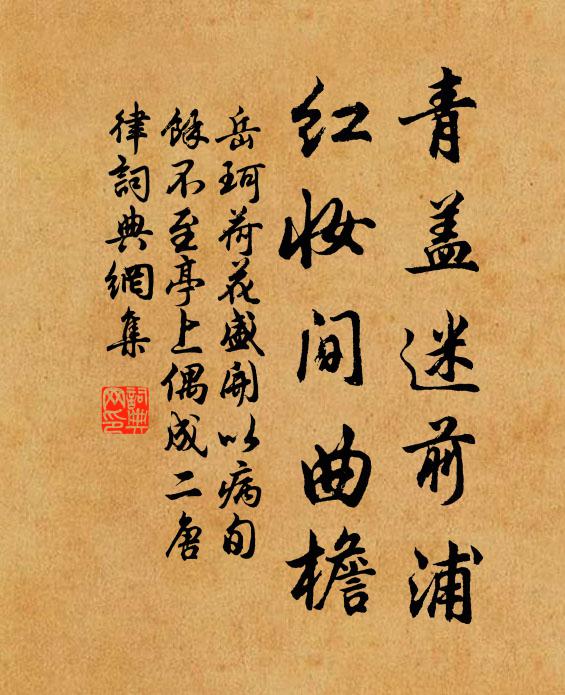 青盖迷前浦
红妆间曲檐
岳珂荷花盛开以病旬
餘不至亭上偶成二唐
律詞典網集
詞典
网印